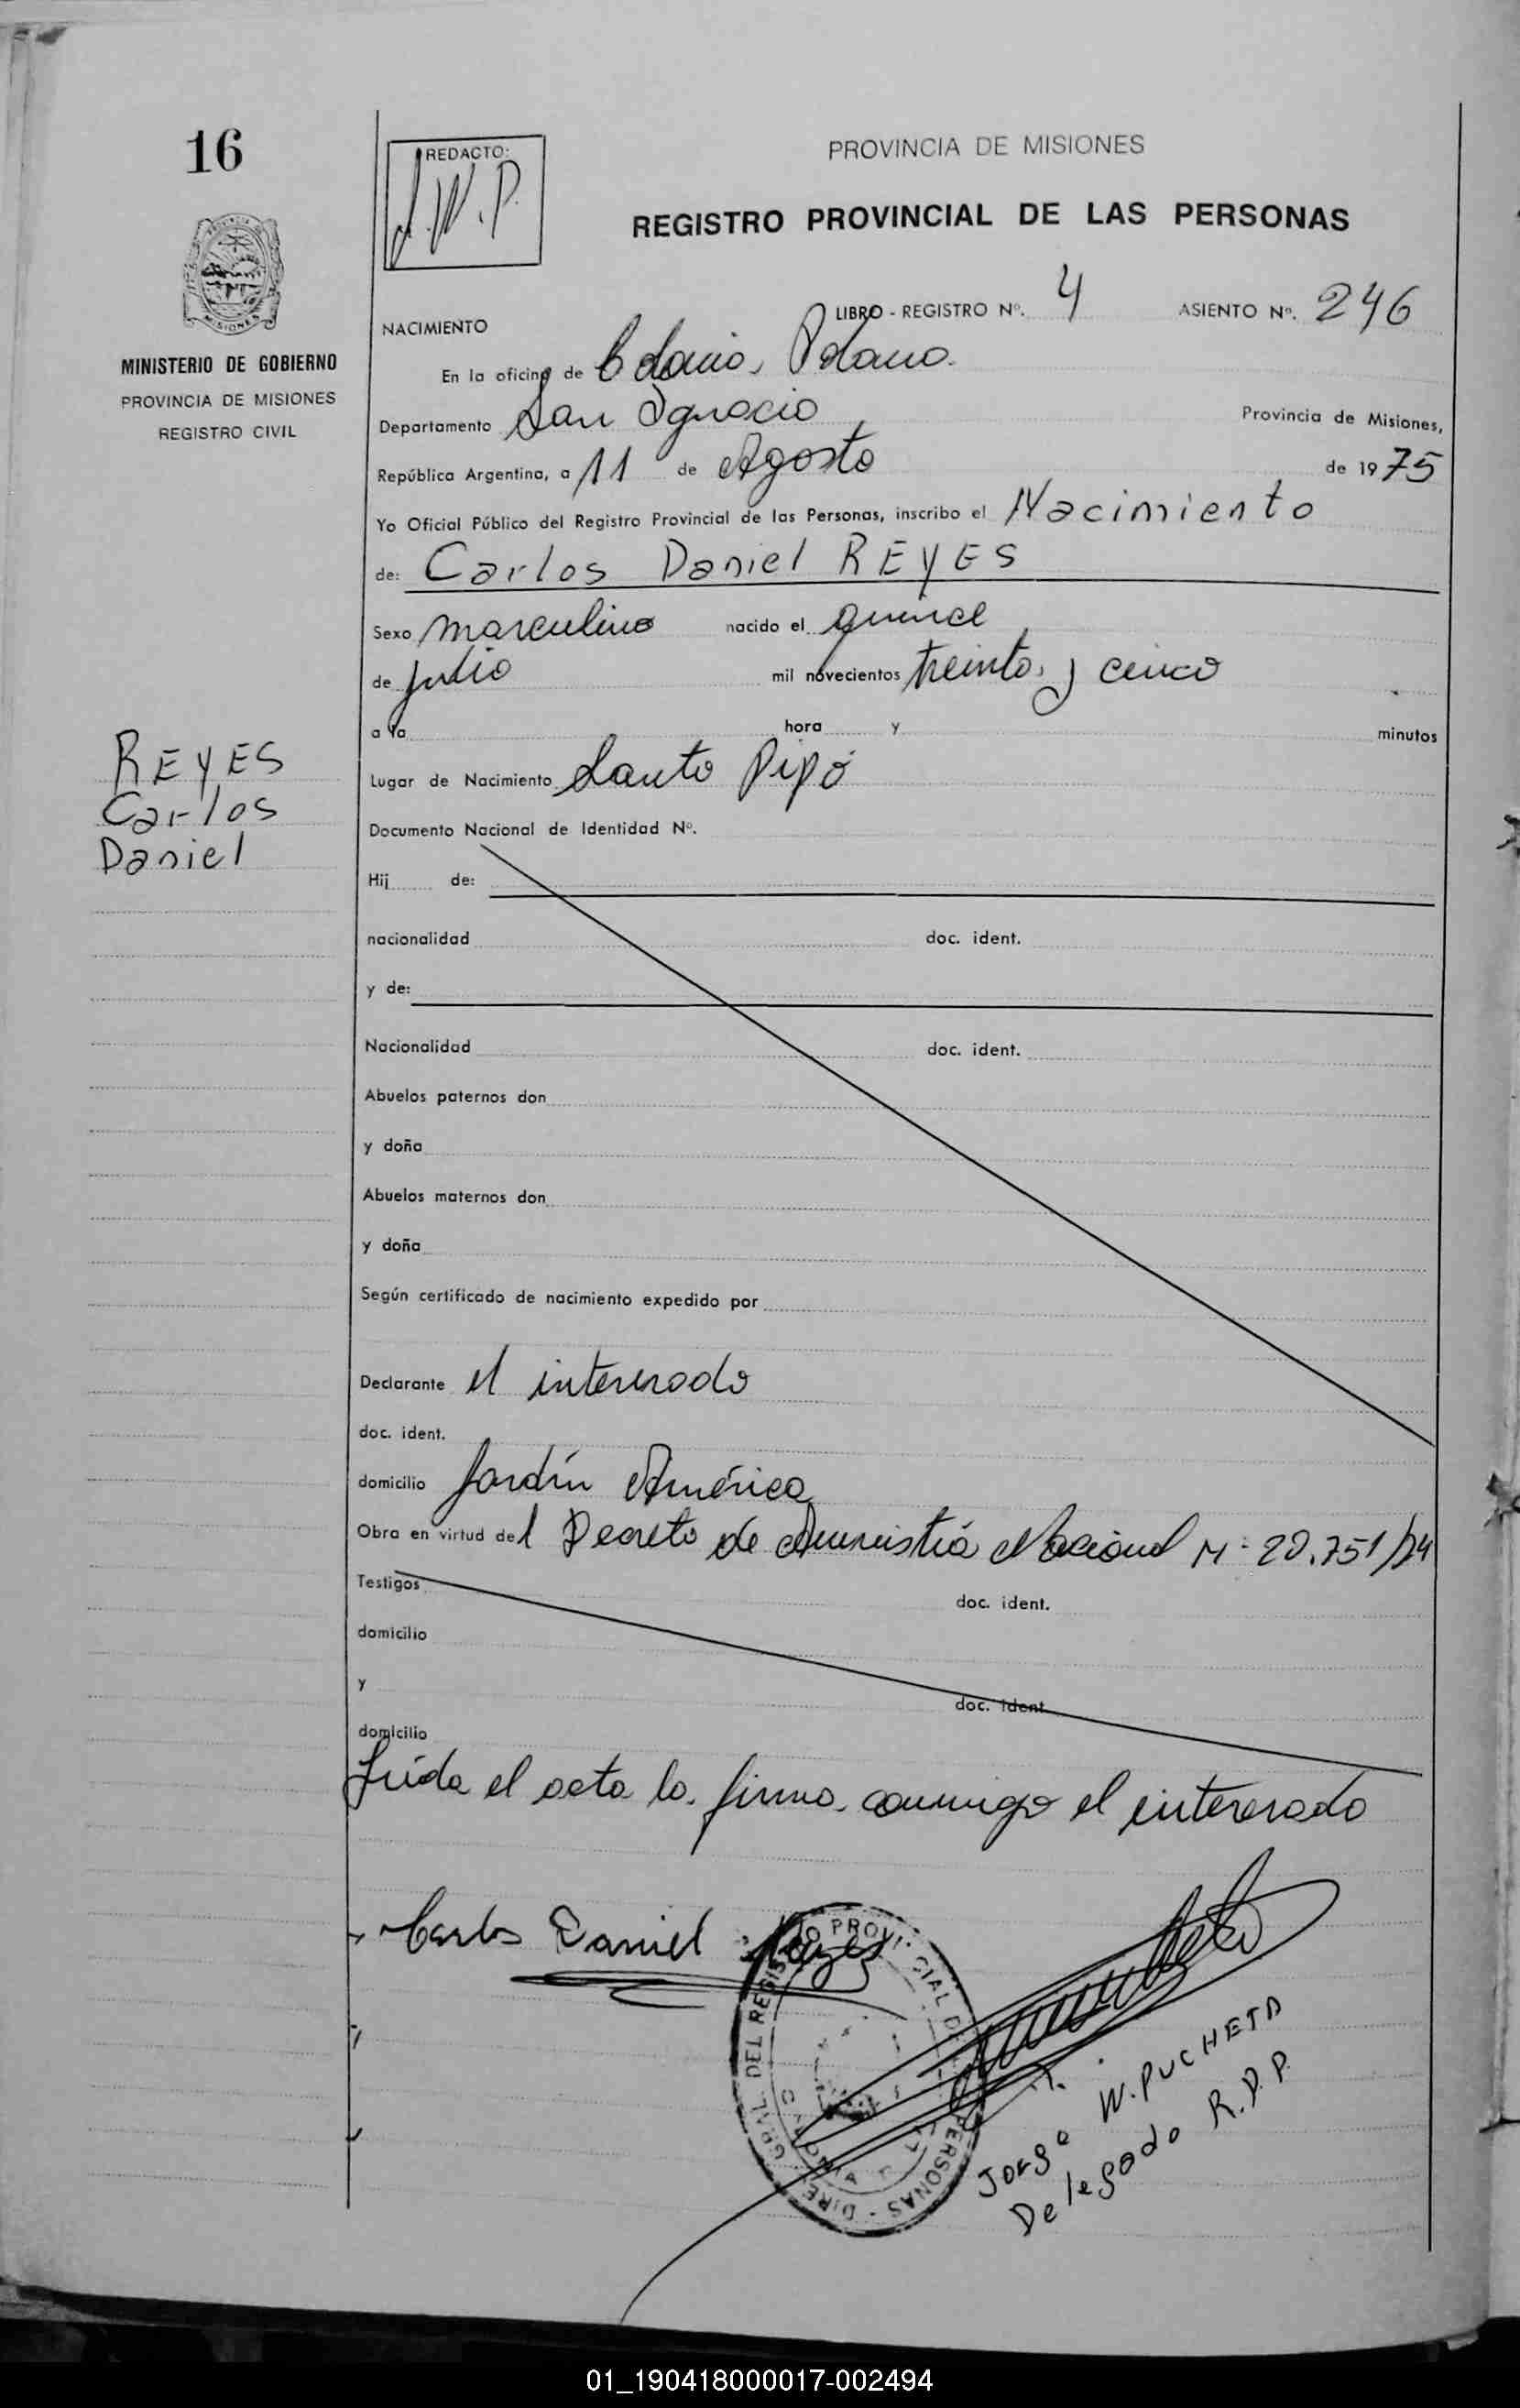 16
REDACTO:
J.W.P.
PROVINCIA DE MISIONES
REGISTRO PROVINCIAL DE LAS PERSONAS
MISIONES
MINISTERIO DE GOBIERNO
PROVINCIA DE MISIONES
REGISTRO CIVIL
LIBRO - REGISTRO Nº. 4 ASIENTO Nº. 246
NACIMIENTO
En la oficina de Colonia Polana
Departamento San Ignacio Provincia de Misiones,
República Argentina, a 11 de Agosto de 1975
Yo Oficial Público del Registro Provincial de las Personas, inscribo el Nacimiento
de: Carlos Daniel REYES
Sexo masculino nacido el quince
de julio mil novecientos treinta y cinco
a la hora y minutos
REYES
Carlos
Daniel
Lugar de Nacimiento Santo Pipó
Documento Nacional de Identidad Nº.
Hij de:
nacionalidad doc. ident.
y de:
Nacionalidad doc. ident.
Abuelos paternos don
y doña
Abuelos maternos don
y doña
Según certificado de nacimiento expedido por
Declarante el interesado
doc. ident.
domicilio Jardín América
Obra en virtud del Decreto de Amnistía Nacional Nº 20.751/74
Testigos doc. ident.
domicilio
y doc. ident.
domicilio
Leída el acta la firma conmigo el interesado
Carlos Daniel Reyes
DEL REGISTRO PROVINCIAL DE PERSONAS - DIRE GRAL.
Jorge W. PUCHETA
Delegado R.P.P.
01_190418000017-002494